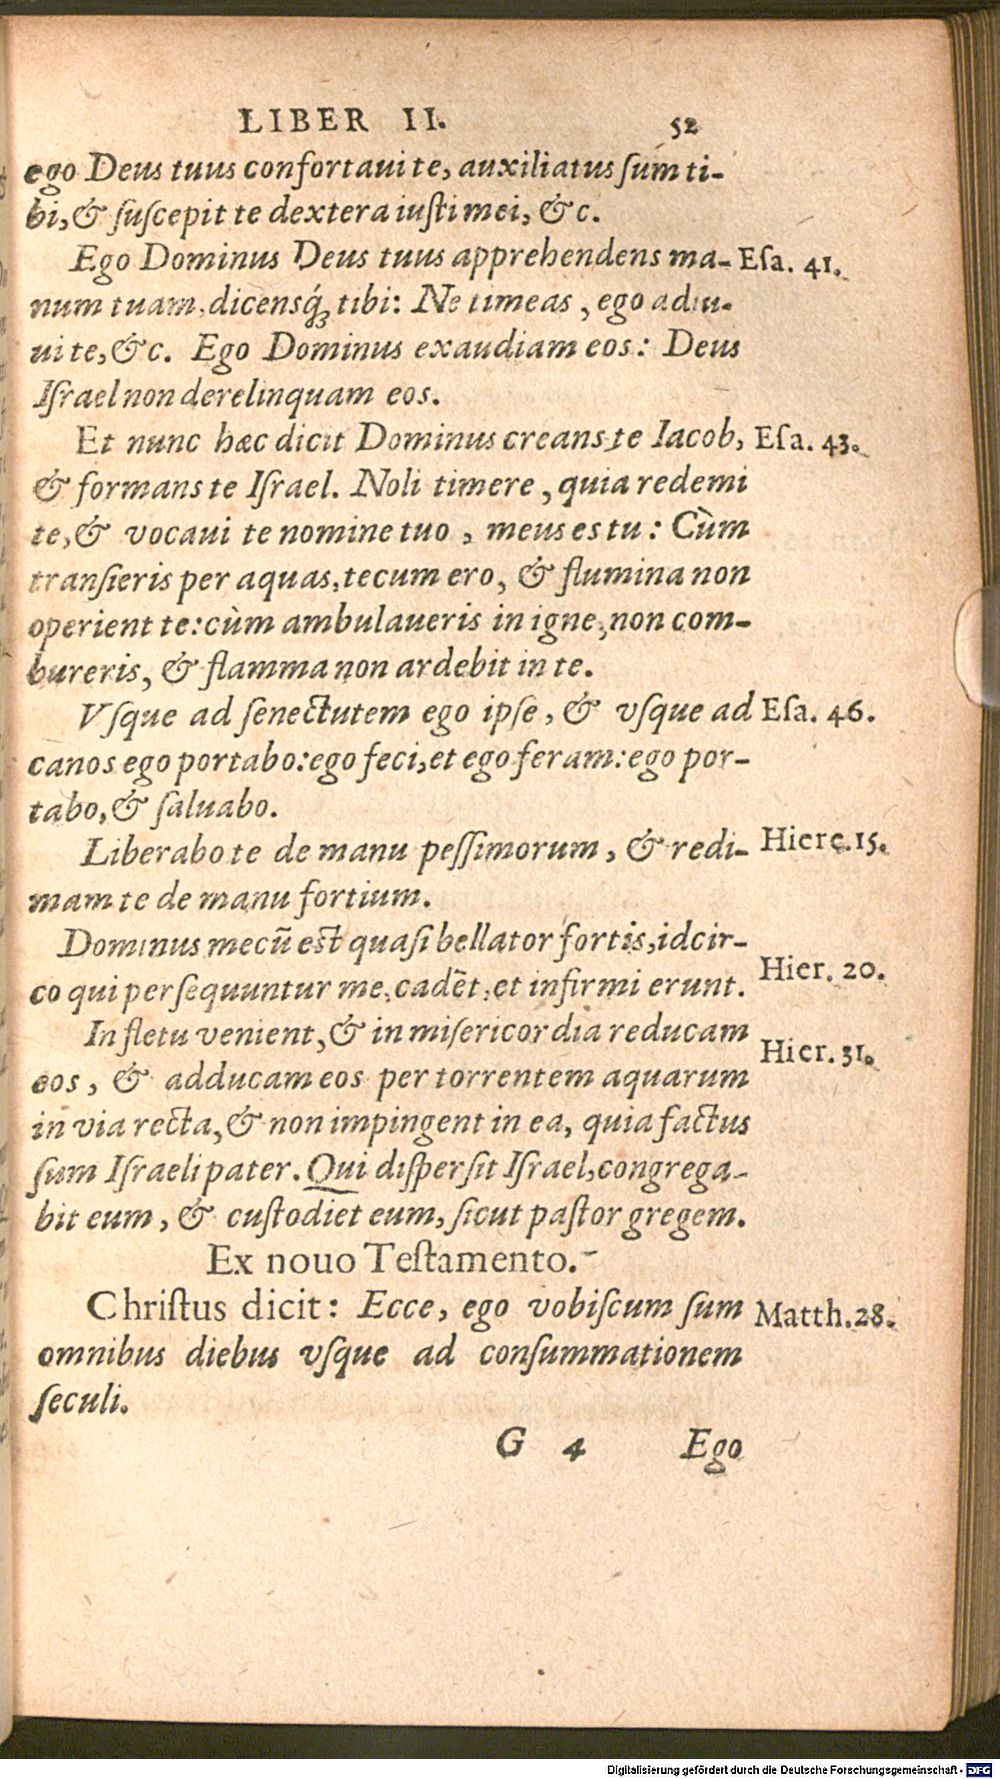 LIBER II. 52
ego Deus tuus confortaui te, auxiliatus ſum ti-
bi, & ſuſcepit te dextera iuſti mei, &c.
Ego Dominus Deus tuus apprehendens ma- Eſa. 41.
num tuam, dicensq́ʒ tibi: Ne timeas, ego adiu-
ui te, &c. Ego Dominus exaudiam eos: Deus
Iſrael non derelinquam eos.
Et nunc hæc dicit Dominus creans te Iacob, Eſa. 43.
& formans te Iſrael. Noli timere, quia redemi
te, & vocaui te nomine tuo, meus es tu: Cùm
tranſieris per aquas, tecum ero, & flumina non
operient te: cùm ambulaueris in igne, non com-
bureris, & flamma non ardebit in te.
Vſque ad ſenectutem ego ipſe, & vſque ad Eſa. 46.
canos ego portabo: ego feci, et ego feram: ego por-
tabo, & ſaluabo.
Liberabo te de manu peſſimorum, & redi- Hiere. 15.
mam te de manu fortium.
Dominus mecũ eſt quaſi bellator fortis, idcir-
co qui perſequuntur me, cadẽt, et infirmi erunt. Hier. 20.
In fletu venient, & in miſericordia reducam
eos, & adducam eos per torrentem aquarum Hier. 31.
in via recta, & non impingent in ea, quia factus
ſum Iſraeli pater. Qui diſperſit Iſrael, congrega-
bit eum, & cuſtodiet eum, ſicut paſtor gregem.
Ex nouo Teſtamento.
Chriſtus dicit: Ecce, ego vobiſcum ſum Matth. 28.
omnibus diebus vſque ad conſummationem
ſeculi.
G 4 Ego
Digitalisierung gefördert durch die Deutsche Forschungsgemeinschaft - DFG